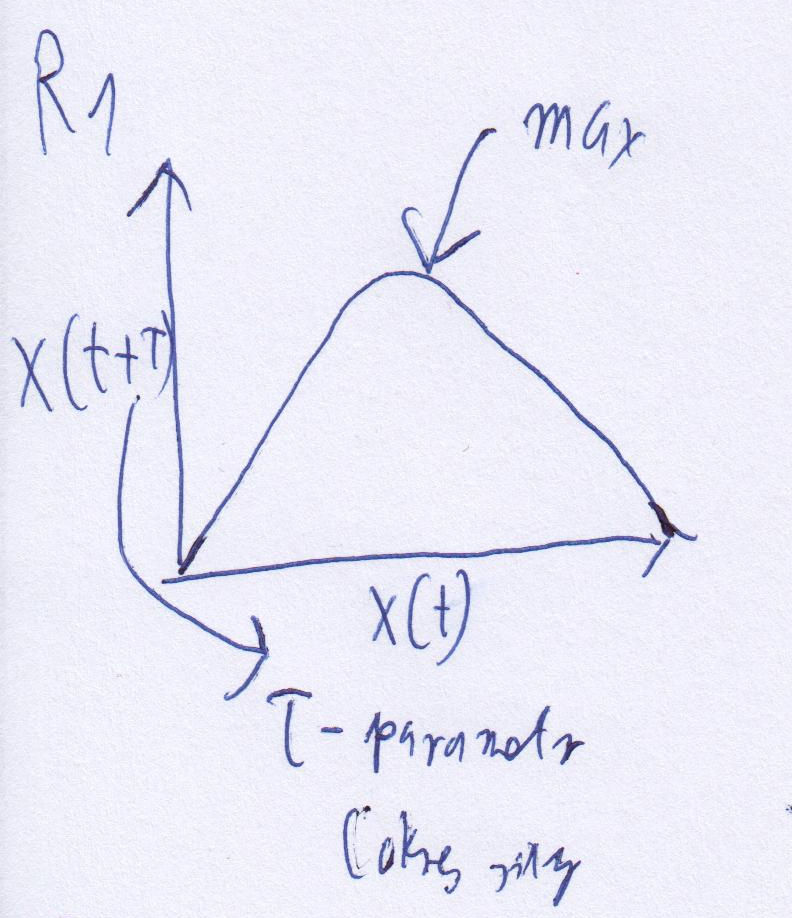 R1
max
X(t+T)
X(t)
T - parametr
(okres